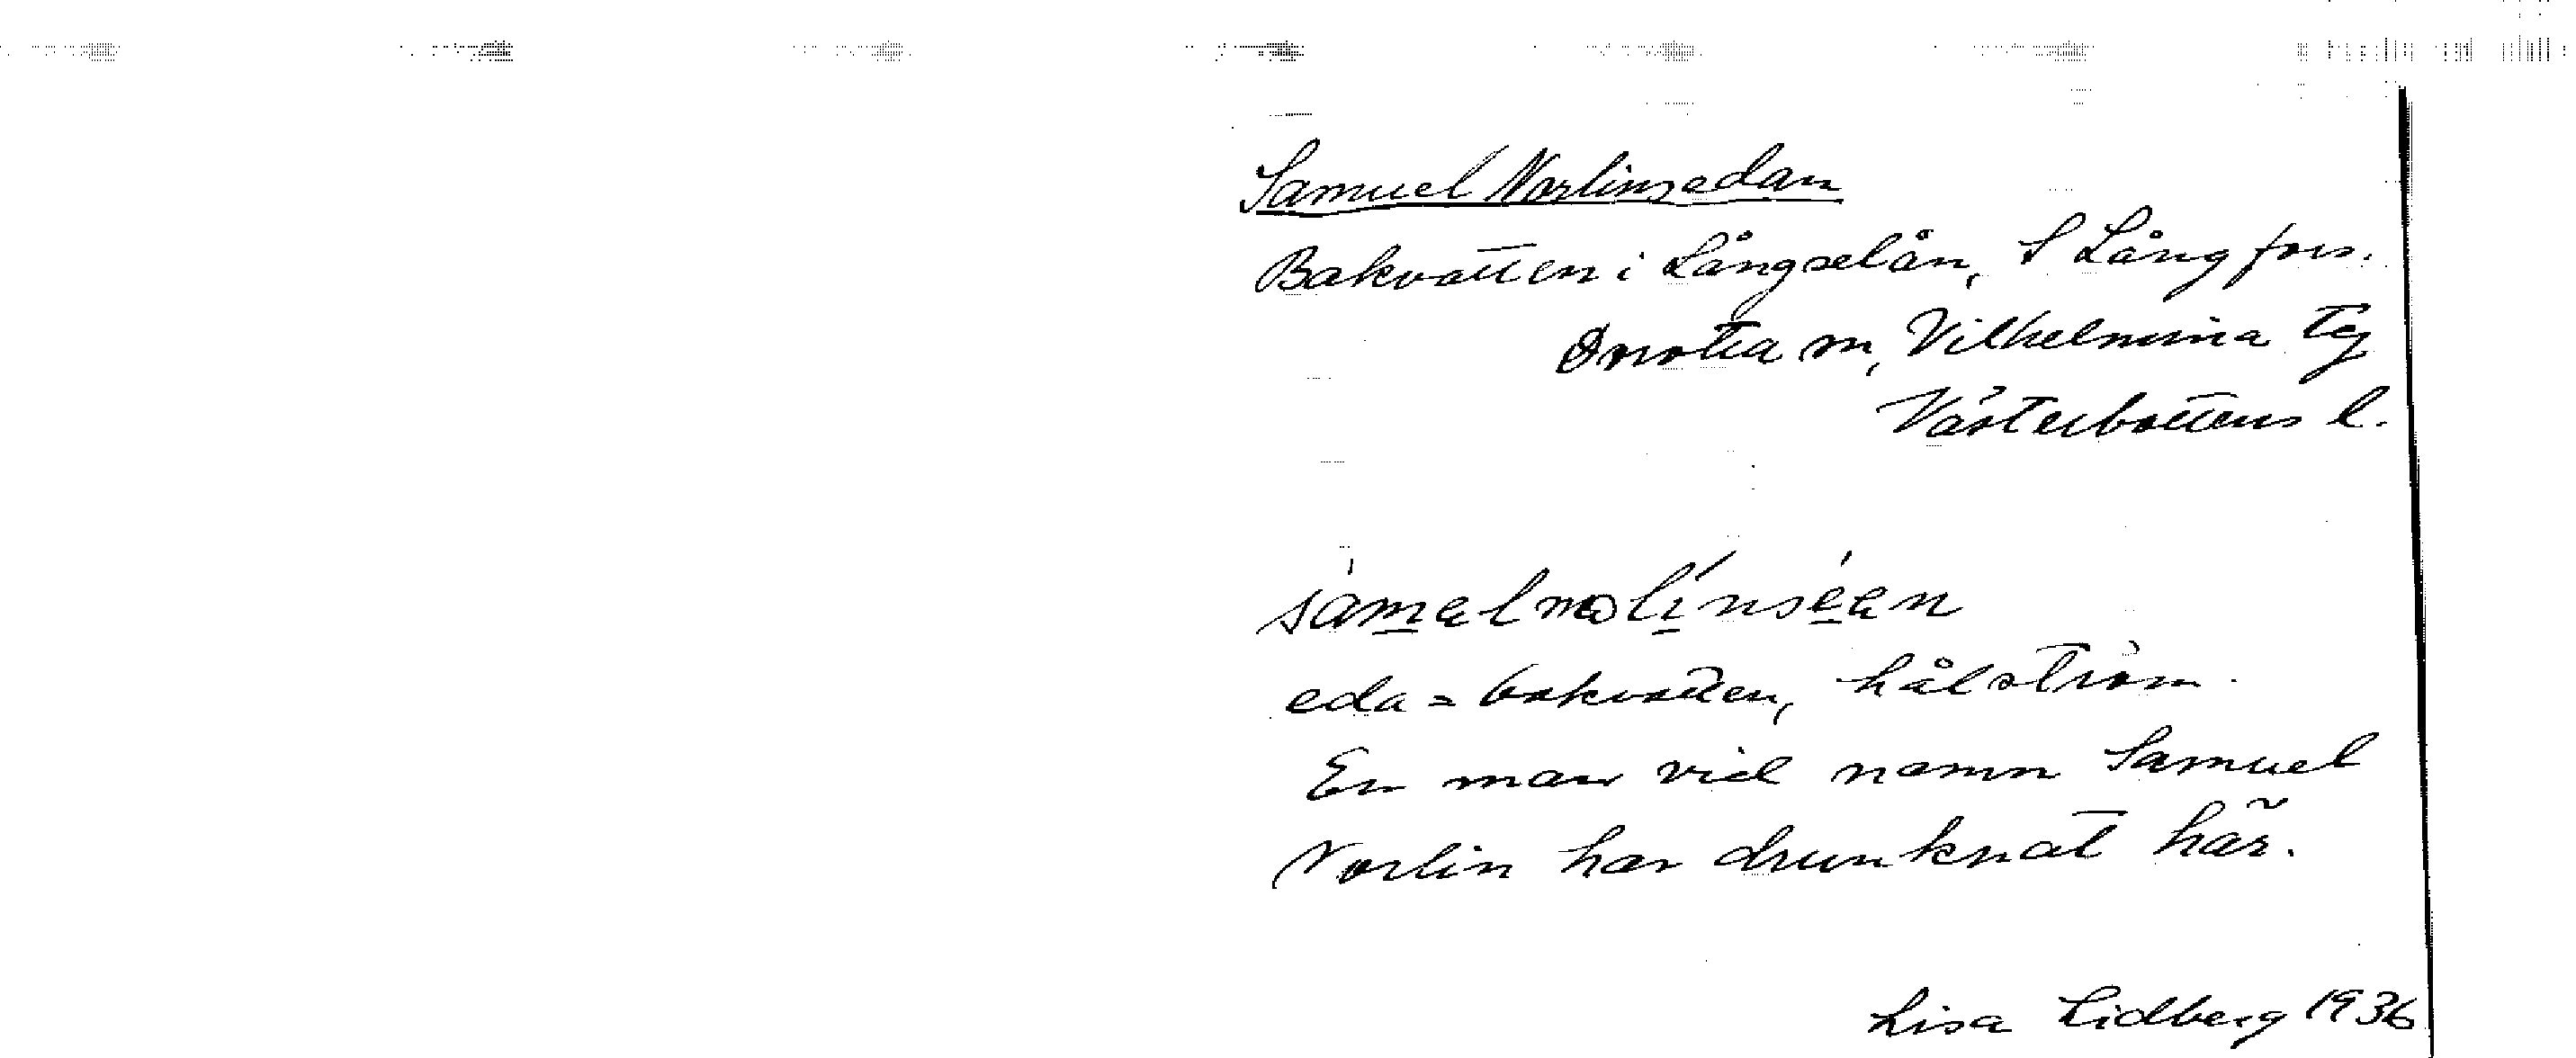 Samuel Norlinsedan
Bakvatten i Långselån, S Långfors.
Dorotea sn, Vilhelmina tg
Västerbottens l.
eda = bakvatten, hålström.
En man vid namn Samuel
Norlin har drunknat här.
Lisa Lidberg 1936